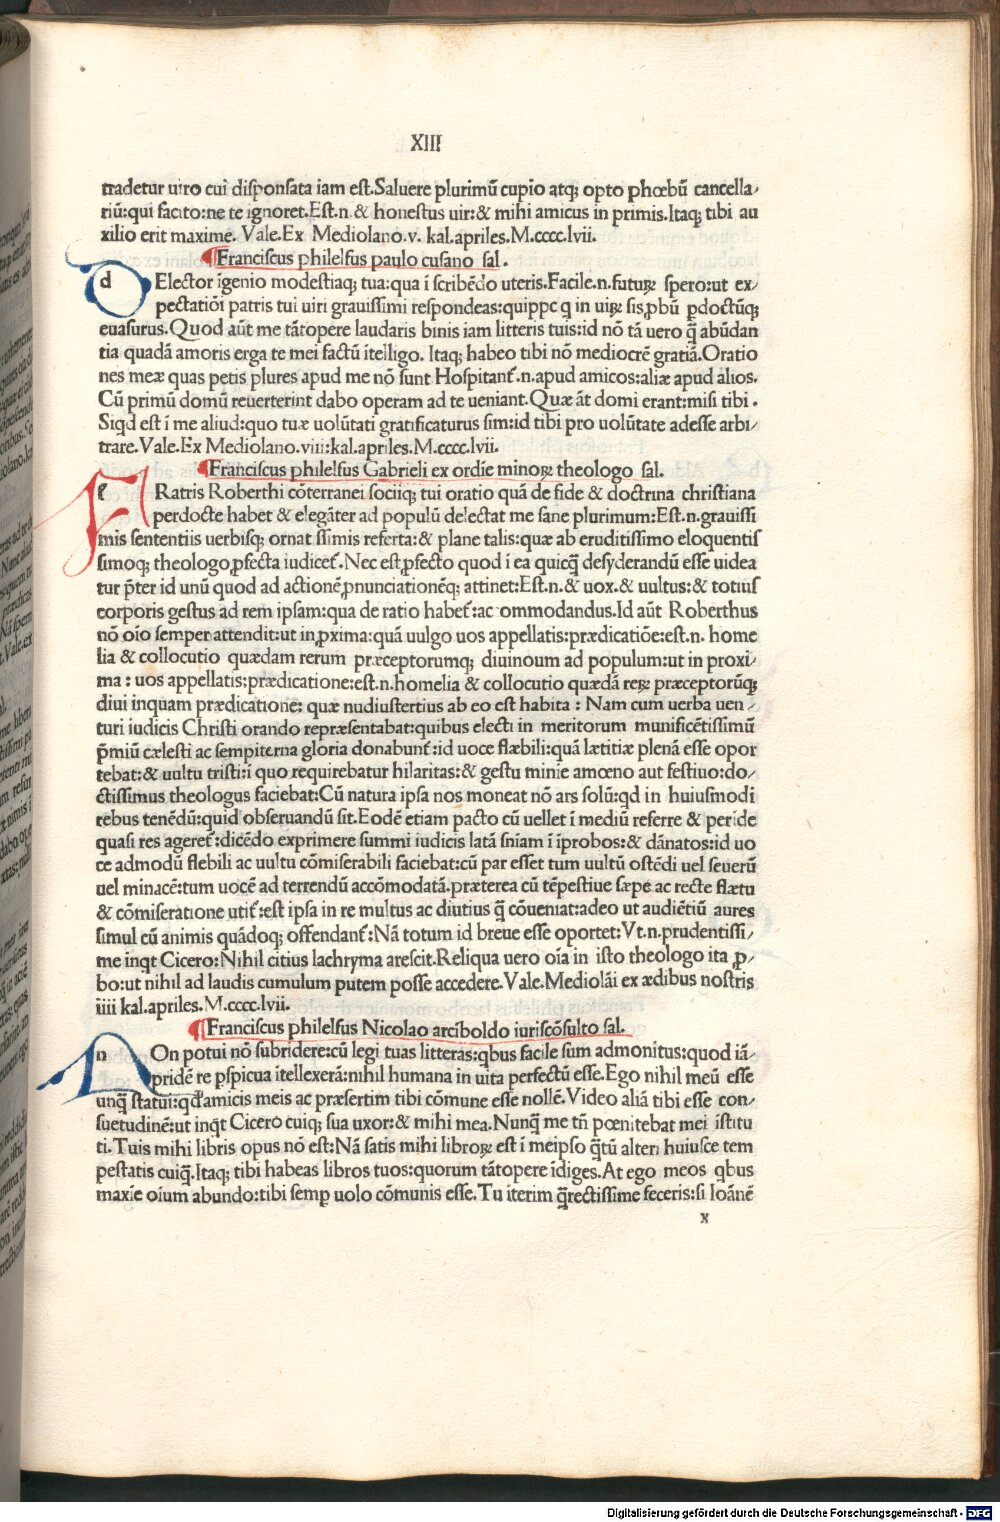 XIII
tradetur uiro cui disponsata iam est.Saluere plurimū cupio atq; opto phœbū cancella/
riū:qui facito:ne te ignoret.Est.n.& honestus uir:& mihi amicus in primis.Itaq; tibi au
xilio erit maxime. Vale.Ex Mediolano.v. kal.apriles.M.cccc.lvii.
Franciscus philelfus paulo cusano sal.
dElector īgenio modestiaq; tua:qua ī scribēdo uteris.Facile.n.futuꝝ spero:ut ex/
pectatiōi patris tui uiri grauissimi respondeas:quippe q in uiꝝ sis,pbū pdoctūq;
euasurus.Quod aūt me tātopere laudaris binis iam litteris tuis:id nō tā uero q̄ abūdan
tia quadā amoris erga te mei factū īteiligo. Itaq; habeo tibi nō mediocrē gratiā.Oratio
nes meæ quas petis plures apud me nō sunt Hospitanť.n.apud amicos:aliæ apud alios.
Cū primū domū reuerterint dabo operam ad te ueniant.Quæ āt domi erant:misi tibi.
Siqd est ī me aliud:quo tuæ uolūtati gratificaturus sim:id tibi pro uolūtate adesse arbi/
trare.Vale.Ex Mediolano.viii:kal.apriles.M.cccc.lvii.
Franciscus philelfus Gabrieli ex ordīe minoꝝ theologo sal.
fRatris Roberthi cōterranei sociiq; tui oratio quā de fide & doctrina christiana
perdocte habet & elegāter ad populū delectat me sane plurimum:Est.n.grauissi
mis sententiis uerbisq; ornat ssimis referta:& plane talis:quæ ab eruditissimo eloquentis
simoq; theologo ꝓfecta iudiceť.Nec est ꝓfecto quod ī ea quicq̄ desyderandū esse uidea
tur p̄ter id unū quod ad actionē ꝓnunciationēq; attinet:Est.n.& uox.& uultus:& totius
corporis gestus ad rem ipsam:qua de ratio habeť:ac ommodandus.Id aūt Roberthus
nō oīo semper attendit:ut in ꝓxima:quā uulgo uos appellatis:prædicatiōe:est.n. home
lia & collocutio quædam rerum præceptorumq; diuinoum ad populum:ut in proxi/
ma : uos appellatis:prædicatione:est.n.homelia & collocutio quædā reꝝ præceptorūq;
diui inquam prædicatione: quæ nudiustertius ab eo est habita : Nam cum uerba uen /
turi iudicis Christi orando repræsentabat:quibus electi in meritorum munificētissimū
p̄miū cælesti ac sempiterna gloria donabunť:id uoce flæbili:quā lætitiæ plenā esse opor
tebat:& uultu tristi:ī quo requirebatur hilaritas:& gestu minie amœno aut festiuo:do/
ctissimus theologus faciebat:Cū natura ipsa nos moneat nō ars solū:qd in huiusmodi
rebus tenēdū:quid obseruandū sit.Eodē etiam pacto cū uellet ī mediū referre & peride
quasi res ageret :dicēdo exprimere summi iudicis latā sniam ī īprobos:& dānatos:id uo
ce admodū flebili ac uultu cōmiserabili faciebat:cū par esset tum uultū ostēdi uel seuerū
uel minacē:tum uocē ad terrendū accōmodatā.præterea cū tēpestiue sæpe ac recte flætu
& cōmiseratione utiť:est ipsa in re multus ac diutius q̄ cōueniat:adeo ut audiētiū aures
simul cū animis quādoq; offendanť:Nā totum id breue esse oportet:Vt.n.prudentissi/
me inqt Cicero:Nihil citius lachryma arescit.Reliqua uero oīa in isto theologo ita ꝓ/
bo:ut nihil ad laudis cumulum putem posse accedere.Vale.Mediolāi ex ædibus nostris
iiii kal.apriles.M.cccc.lvii.
Franciscus philelfus Nicolao arciboldo iuriscōsulto sal.
nOn potui nō subridere:cū legi tuas litteras:qbus facile sum admonitus:quod iā/
pridē re pspicua itellexerā:nihil humana in uita perfectū esse.Ego nihil meū esse
unq̄ statui:qd amicis meis ac præsertim tibi cōmune esse nollē.Video aliā tibi esse con/
suetudinē:ut inqt Cicero cuiq; sua uxor:& mihi mea.Nunq̄ me tñ pœnitebat mei īstitu
ti.Tuis mihi libris opus nō est:Nā satis mihi libroꝝ est ī meipso q̄tū alteri huiusce tem
pestatis cuiq̄.Itaq; tibi habeas libros tuos:quorum tātopere īdiges.At ego meos qbus
maxīe oīum abundo:tibi semp uolo cōmunis esse. Tu īterim q̄rectissime feceris:si Ioānē
x
Digitalisierung gefördert durch die Deutsche Forschungsgemeinschaft - DFG